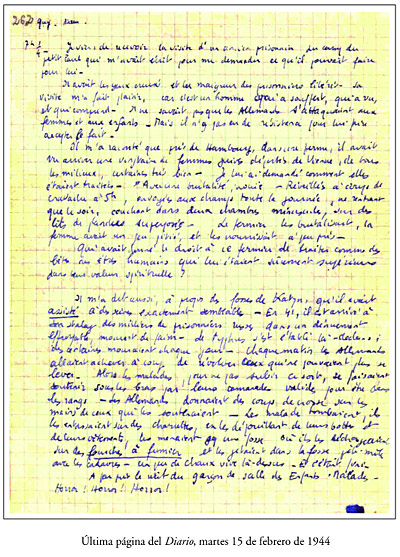 262
7h 1/4 - Je viens de recevoir la visite d'un ancien prisonnier du camp du
petit Paul qui m'avait écrit pour me demander ce qu'il pouvait faire
pour lui -
Il avait les yeux creux et la maigreur des prisonniers libérés - sa
visite m'a fait plaisir, car c'est un homme qui a souffert, qui a vu,
et qui comprend - Il ne savait pas que les Allemands s'attaquaient aux
femmes et aux enfants - Mais il n'y a pas eu de résistance pour lui faire
accepter le fait -
Il m'a raconté que près de Hambourg, dans une ferme, il avait
vu arriver une vingtaine de femmes juives déportées de Vienne, de tous
les milieux, certaines très bien - Je lui ai demandé comment elles
étaient traitées - "Avec une brutalité inouïe - Réveillées à coups de
cravache à 5h, envoyées aux champs toute la journée, ne rentrant
que le soir, couchant dans deux chambres minuscules, sur des
lits de planches superposés - Le fermier les brutalisait, la
femme avait un peu pitié, et les nourrissait à peu près -
Qui avait donné le droit à ce fermier de traiter comme des
bêtes des êtres humains qui lui étaient sûrement supérieurs
dans leur valeur spirituelle ?
Il m'a dit aussi, à propos des fosses de Katyn, qu'il avait
assisté à des scènes exactement semblables - En 41, il est arrivé à
son stalag des milliers de prisonniers russes, dans un dénuement
effroyable, mourant de faim - le typhus s'est établi là-dedans :
des centaines mouraient chaque jour - Chaque matin les Allemands
allaient achever à coups de revolver ceux qui ne pouvaient plus se
lever - Alors les malades, pour ne pas subir ce sort, se faisaient
soutenir sous les bras par leurs camarades valides pour être dans
les rangs - Les Allemands donnaient des coups de crosse sur les
mains de ceux qui les soutenaient - Les malades tombaient, ils
les entassaient sur des charrettes, en les dépouillant de leurs bottes et
de leurs vêtements, les menaient à une fosse où ils les déchargeaient
sur des fourches à fumier et les jetaient dans la fosse pêle-mêle
avec les cadavres - un peu de chaux vive là-dessus - Et c'était fini -
A peu près le récit du garçon de salle des Enfants-Malades -
Horror ! Horror ! Horror !
Última página del Diario, martes 15 de febrero de 1944